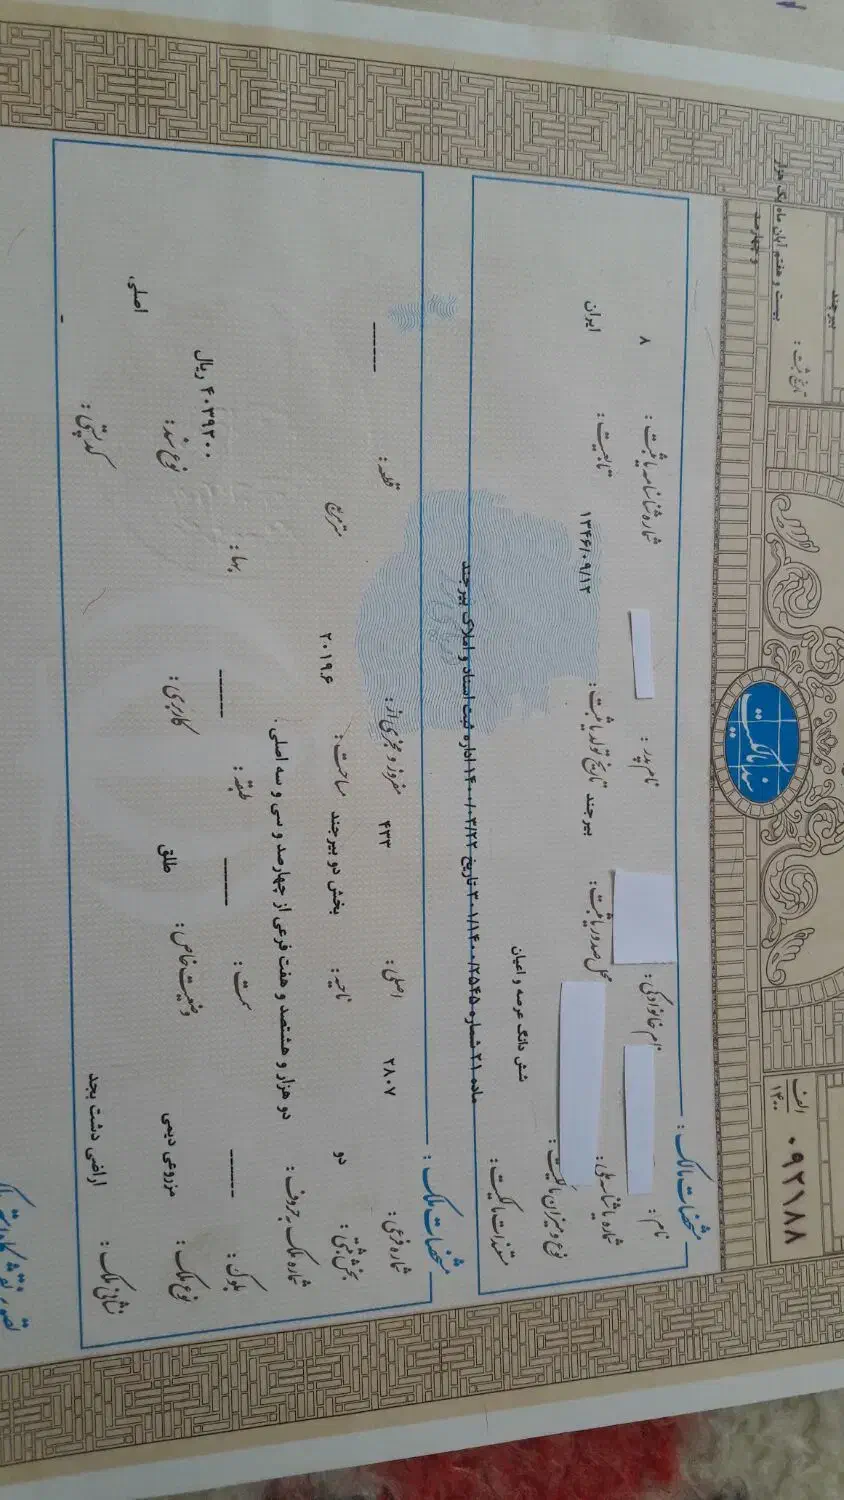 بیرجند
تاریخ ثبت :
بیست و هفتم آبان ماه یک هزار و چهارصد
الف
۱۴۰۰
۰۹۲۱۸۸
سند مالکیت
مشخصات مالک :
نام :
نام خانوادگی :
نام پدر :
شماره شناسنامه یا ثبت : ۸
شماره یا شناسه ملی :
محل صدور یا ثبت : بیرجند
تاریخ تولد یا ثبت : ۱۳۴۶/۰۹/۱۲
تابعیت : ایران
نوع و میزان مالکیت : شش دانگ عرصه و اعیان
مستندات مالکیت : ماده ۲۱ شماره ۳۰۱/۱۴۰۰/۲۵۴۵ تاریخ ۱۴۰۰/۰۳/۲۲ اداره ثبت اسناد و املاک بیرجند
مشخصات ملک :
شماره فرعی : ۲۸۰۷
اصلی : ۴۳۳
مفروز و مجزی از :
قطعه : -----
بخش ثبتی : دو
ناحیه : بخش دو بیرجند
مساحت : ۲۰۱۹۶ مترمربع
شماره ملک به حروف : دو هزار و هشتصد و هفت فرعی از چهارصد و سی و سه اصلی .
بلوک : -----
سمت : -----
طبقه : -----
بها : ۴۰۳۹۲۰۰ ریال
نوع ملک : مزروعی دیمی
وضعیت خاص : طلق
کاربری :
نوع سند : اصلی
نشانی ملک : اراضی دشت بجد
کد پستی : -